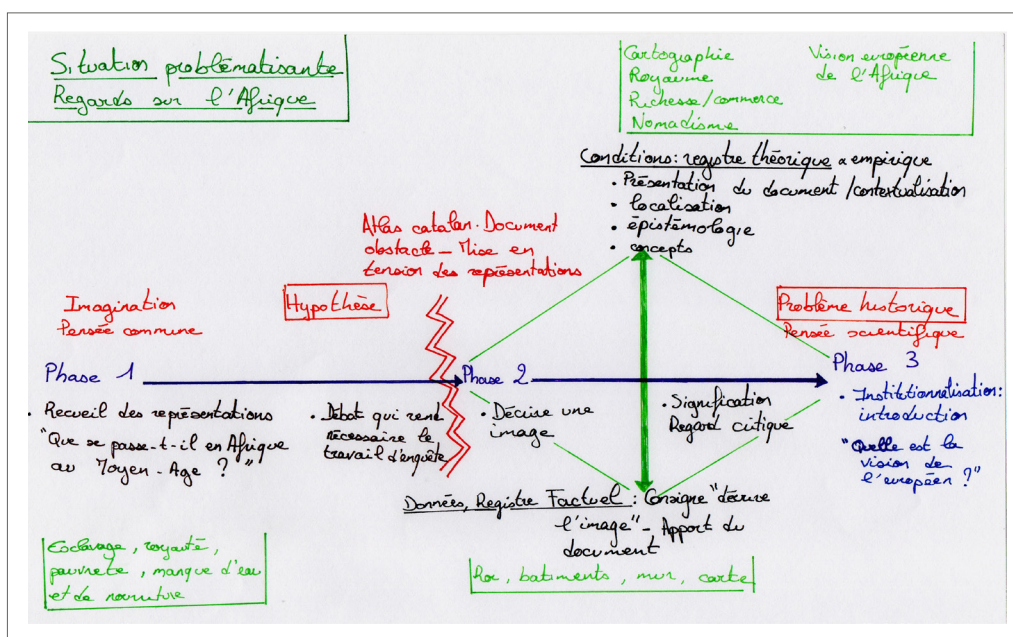 Situation problématisante
Regards sur l'Afrique
Cartographie
Royaume
Richesse/commerce
Nomadisme
Vision européenne
de l'Afrique
Conditions: registre théorique & empirique
• Présentation du document /contextualisation
• localisation
• épistémologie
• concepts
Atlas catalan. Document
obstacle - Mise en
tension des représentations
Imagination
Pensée commune
Hypothèse
Problème historique
Pensée scientifique
Phase 1
Phase 2
Phase 3
• Recueil des représentations
"Que se passe-t-il en Afrique
au Moyen-Age ?"
• Débat qui rend
nécessaire le
travail d'enquête
• Décrire une
image
• Signification
Regard critique
• Institutionnalisation:
introduction
"Quelle est la
vision de
l'européen ?"
Données, Registre Factuel : Consigne "décrire
l'image" - Apport du
document
Esclavage, royauté,
pauvreté, manque d'eau
et de nourriture
Roi, batiments, mur, carte